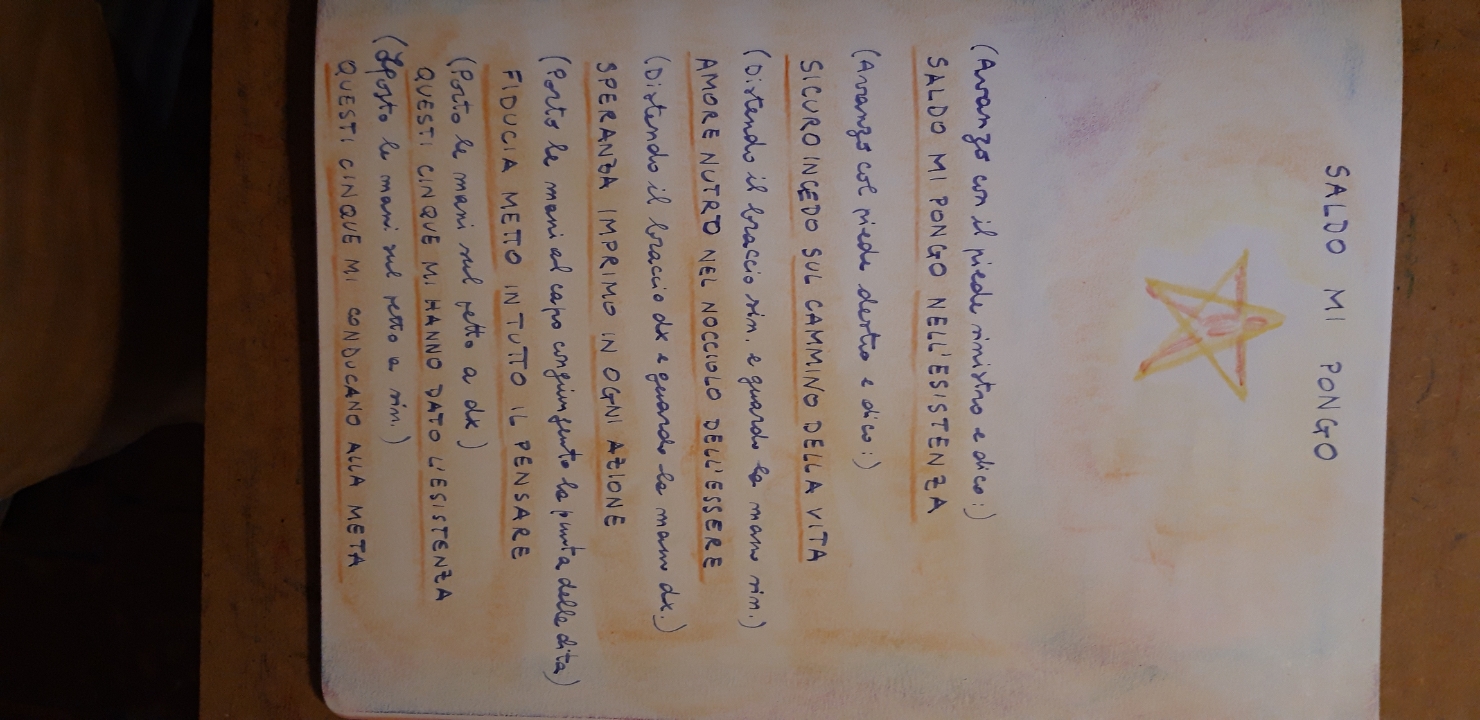 SALDO MI PONGO
(Avanzo con il piede sinistro e dico:)
SALDO MI PONGO NELL'ESISTENZA
(Avanzo col piede destro e dico:)
SICURO INCEDO SUL CAMMINO DELLA VITA
(Distendo il braccio sin. e guardo la mano sin.)
AMORE NUTRO NEL NOCCIOLO DELL'ESSERE
(Distendo il braccio dx e guardo la mano dx.)
SPERANZA IMPRIMO IN OGNI AZIONE
(Porto le mani al capo congiungento la punta delle dita)
FIDUCIA METTO IN TUTTO IL PENSARE
(Porto le mani sul petto a dx)
QUESTI CINQUE MI HANNO DATO L'ESISTENZA
(Sposto le mani sul petto a sin.)
QUESTI CINQUE MI CONDUCANO ALLA META